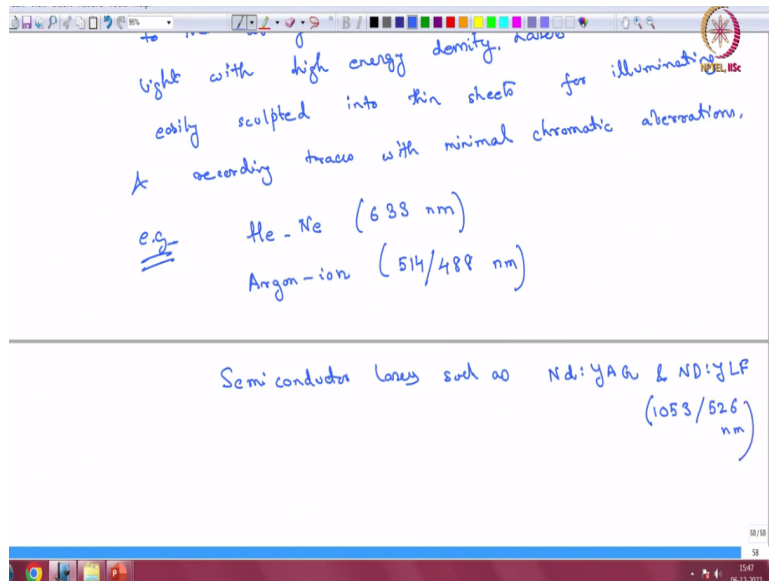 95%
B I
NPTEL, IISc
light with high energy density. Lasers
easily sculpted into thin sheets for illuminating
& recording traces with minimal chromatic aberrations.
e.g. He-Ne (633 nm)
Argon-ion (514/488 nm)
Semiconductor lasers such as Nd:YAG & ND:YLF
(1053/526
nm)
58/60
58
15:47
06-12-2022